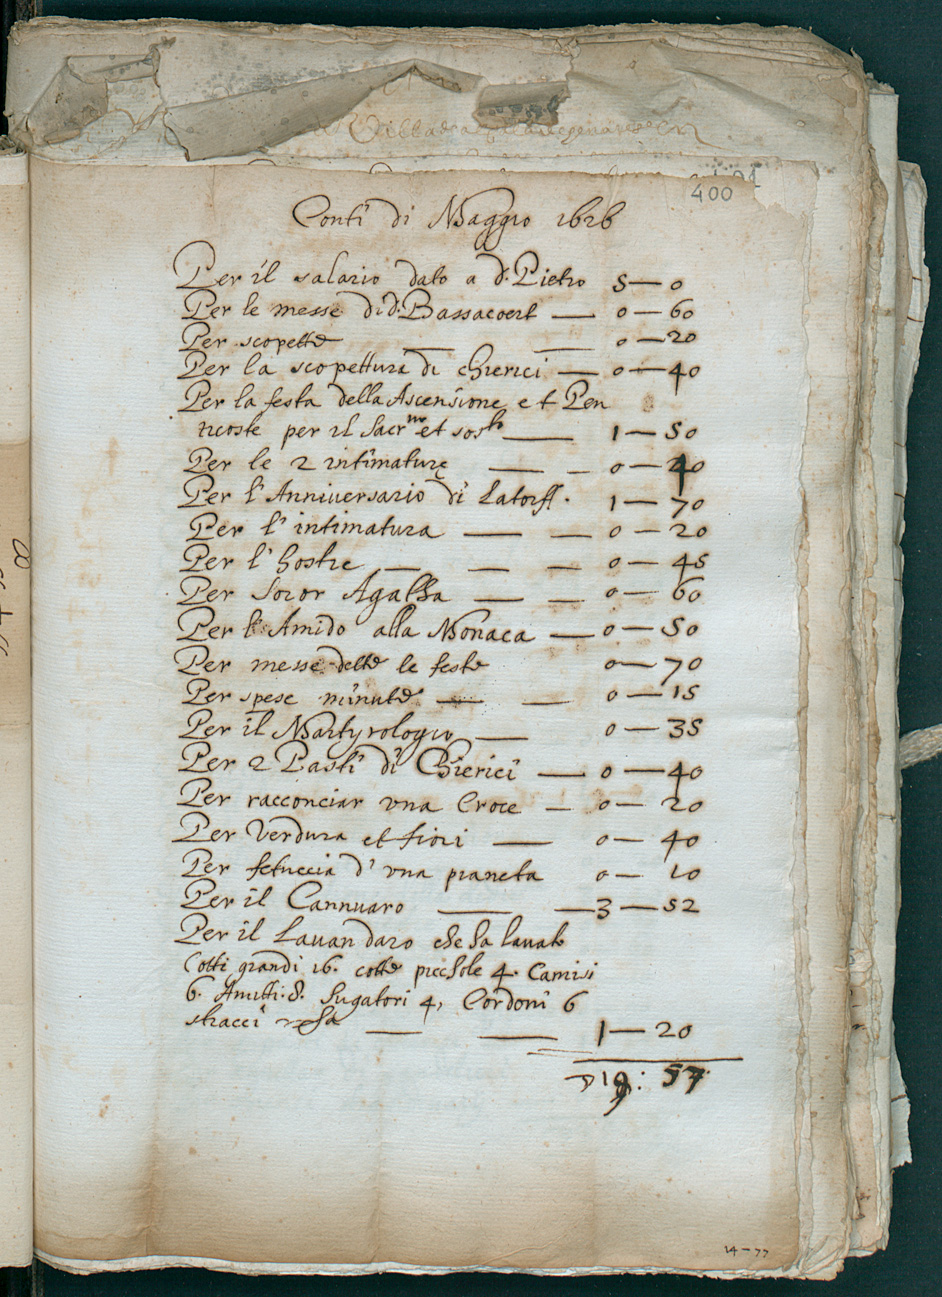 400
Conti di Maggio 1626
Per il salario dato a d. Pietro 5—0
Per le messe di d. Bassacoert — 0—60
Per scopette — — 0—20
Per la scopettura di chierici — 0—40
Per la festa della Ascensione et Pen
ticoste per il Sacr.no et sosto — 1—50
Per le 2 intimature — — 0—40
Per l'Anniversario di Latorff. 1—70
Per l'intimatura — — 0—20
Per l'hostie — — — 0—45
Per Soror Agatha — — 0—60
Per l'Amido alla Monaca — 0—50
Per messe dette le feste 0—70
Per spese minute — — 0—15
Per il Martyrologio — 0—35
Per 2 Pasti di Chierici — 0—40
Per racconciar una Croce — 0—20
Per verdura et fiori — 0—40
Per fetuccia d'una pianeta 0—10
Per il Cannuaro — — 3—52
Per il Lauandaro che ha lauato
Cotti grandi 16. cotte picchole 4. Camisi
6. Amitti. 8. Sugatori 4, Cordoni 6
stracci — — 1—20
19: 57
14-77